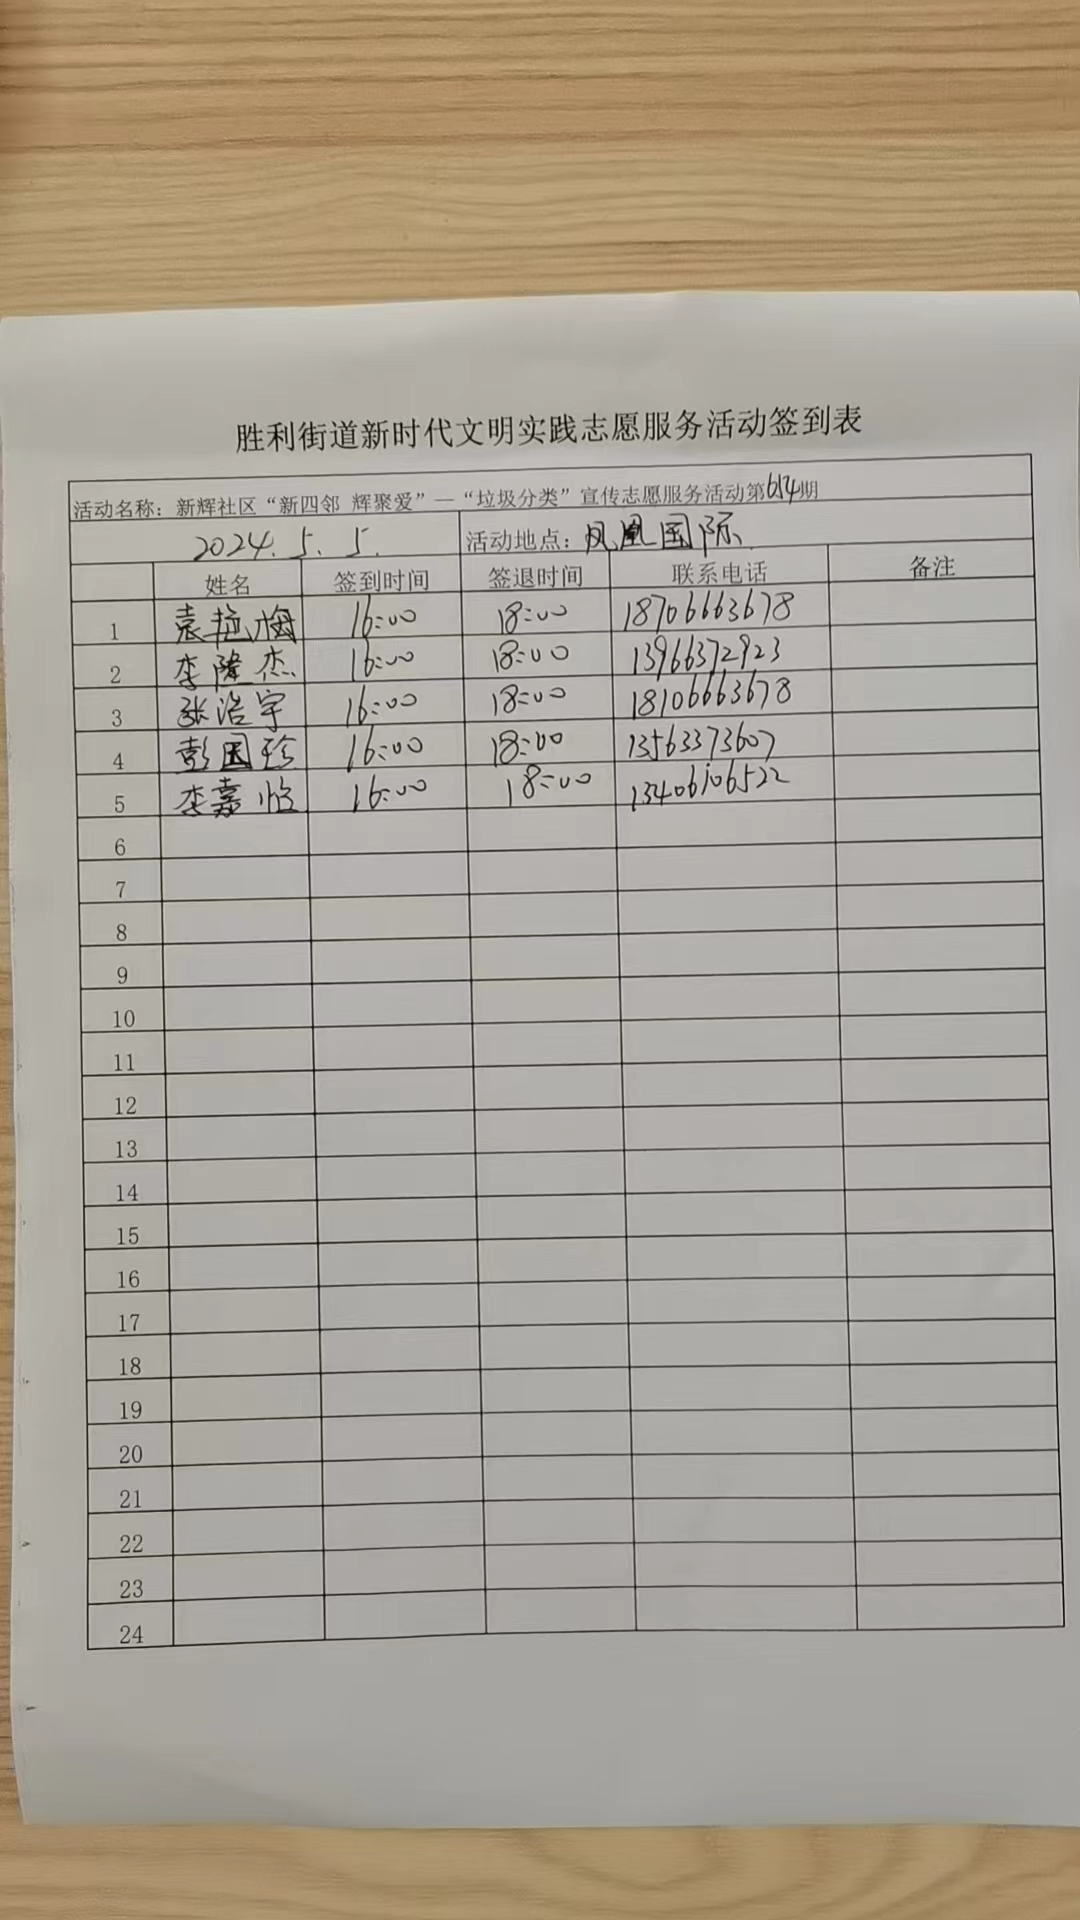 胜利街道新时代文明实践志愿服务活动签到表
活动名称：新辉社区“新四邻 辉聚爱”—“垃圾分类”宣传志愿服务活动第654期
2024.5.5. 活动地点：凤凰国际
姓名 签到时间 签退时间 联系电话 备注
1 袁艳梅 16:00 18:00 18706663678
2 李隆杰 16:00 18:00 13966372923
3 张浩宇 16:00 18:00 18106663678
4 彭国珍 16:00 18:00 13563373607
5 李嘉 16:00 18:00 13406106522
6
7
8
9
10
11
12
13
14
15
16
17
18
19
20
21
22
23
24